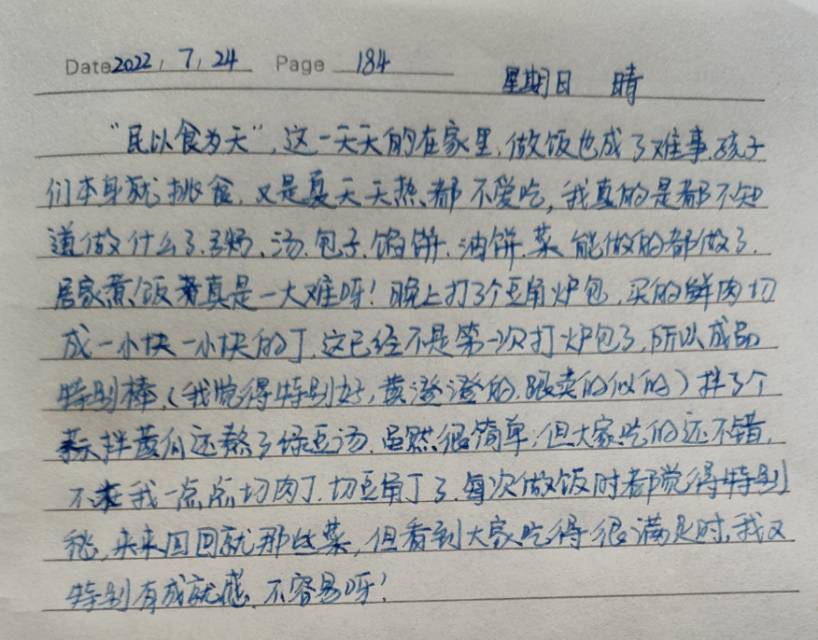 Date 2022, 7, 24 Page 184 星期日 晴
"民以食为天",这一天天的在家里,做饭也成了难事,孩子
们本身就挑食,又是夏天天热,都不爱吃,我真的是都不知
道做什么了,汤、包子、馅饼、油饼、菜能做的都做了,
居家煮饭真是一大难呀!晚上打了个豆角炉包,买的鲜肉切
成一小块一小块的丁,这已经不是第一次打炉包了,所以成品
特别棒,(我觉得特别好,黄澄澄的,跟卖的似的)拌了个
拌黄瓜还熬了绿豆汤,虽然很简单,但大家吃的还不错,
不我一点点切肉丁,切豆角丁了,每次做饭时都觉得特别
愁,来来回回就那些菜,但看到大家吃得很满足时,我又
特别有成就感,不容易呀!